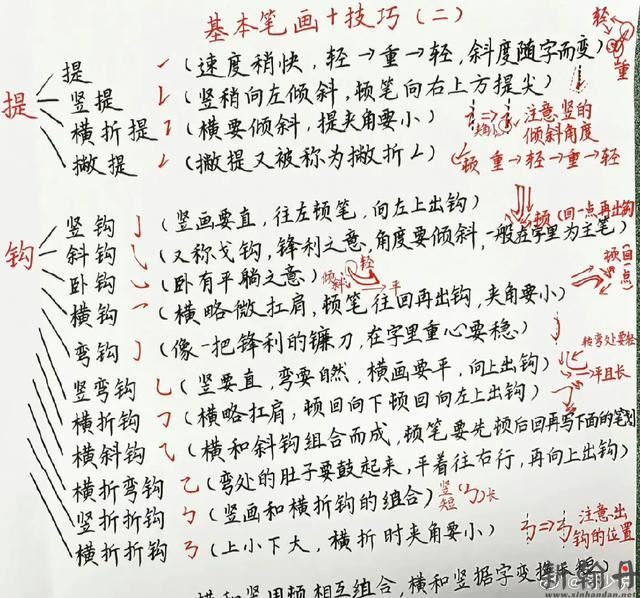 基本笔画+技巧(二)
提
提 (速度稍快,轻→重→轻,斜度随字而变)
轻
重
竖提 (竖稍向左倾斜,顿笔向右上方提尖)
横折提 (横要倾斜,提夹角要小)
夹角小
注意竖的
倾斜角度
撇提 (撇提又被称为撇折∠)
顿 重→轻→重→轻
钩
竖钩 (竖画要直,往左顿笔,向左上出钩)
顿(回一点再出钩)
斜钩 (又称戈钩,锋利之意,角度要倾斜,一般在字里为主笔)
卧钩 (卧有平躺之意)
倾斜 轻 →平
顿(回一点)
横钩 (横略微扛肩,顿笔往回再出钩,夹角要小)
弯钩 (像一把锋利的镰刀,在字里重心要稳)
转弯处要轻
竖弯钩 (竖要直,弯要自然,横画要平,向上出钩)
→平且长
横折钩 (横略扛肩,顿回向下顿回向左上出钩)
横斜钩 (横和斜钩组合而成,顿笔要先顿后回再写下面的笔划)
横折弯钩 (弯处的肚子要鼓起来,平着往右行,再向上出钩)
竖折折钩 (竖画和横折钩的组合)
竖短 长
横折折钩 (上小下大,横折时夹角要小)
注意出
钩的位置
横和竖用顿相互组合,横和竖据字变换
新翰丹
www.xinhandan.net